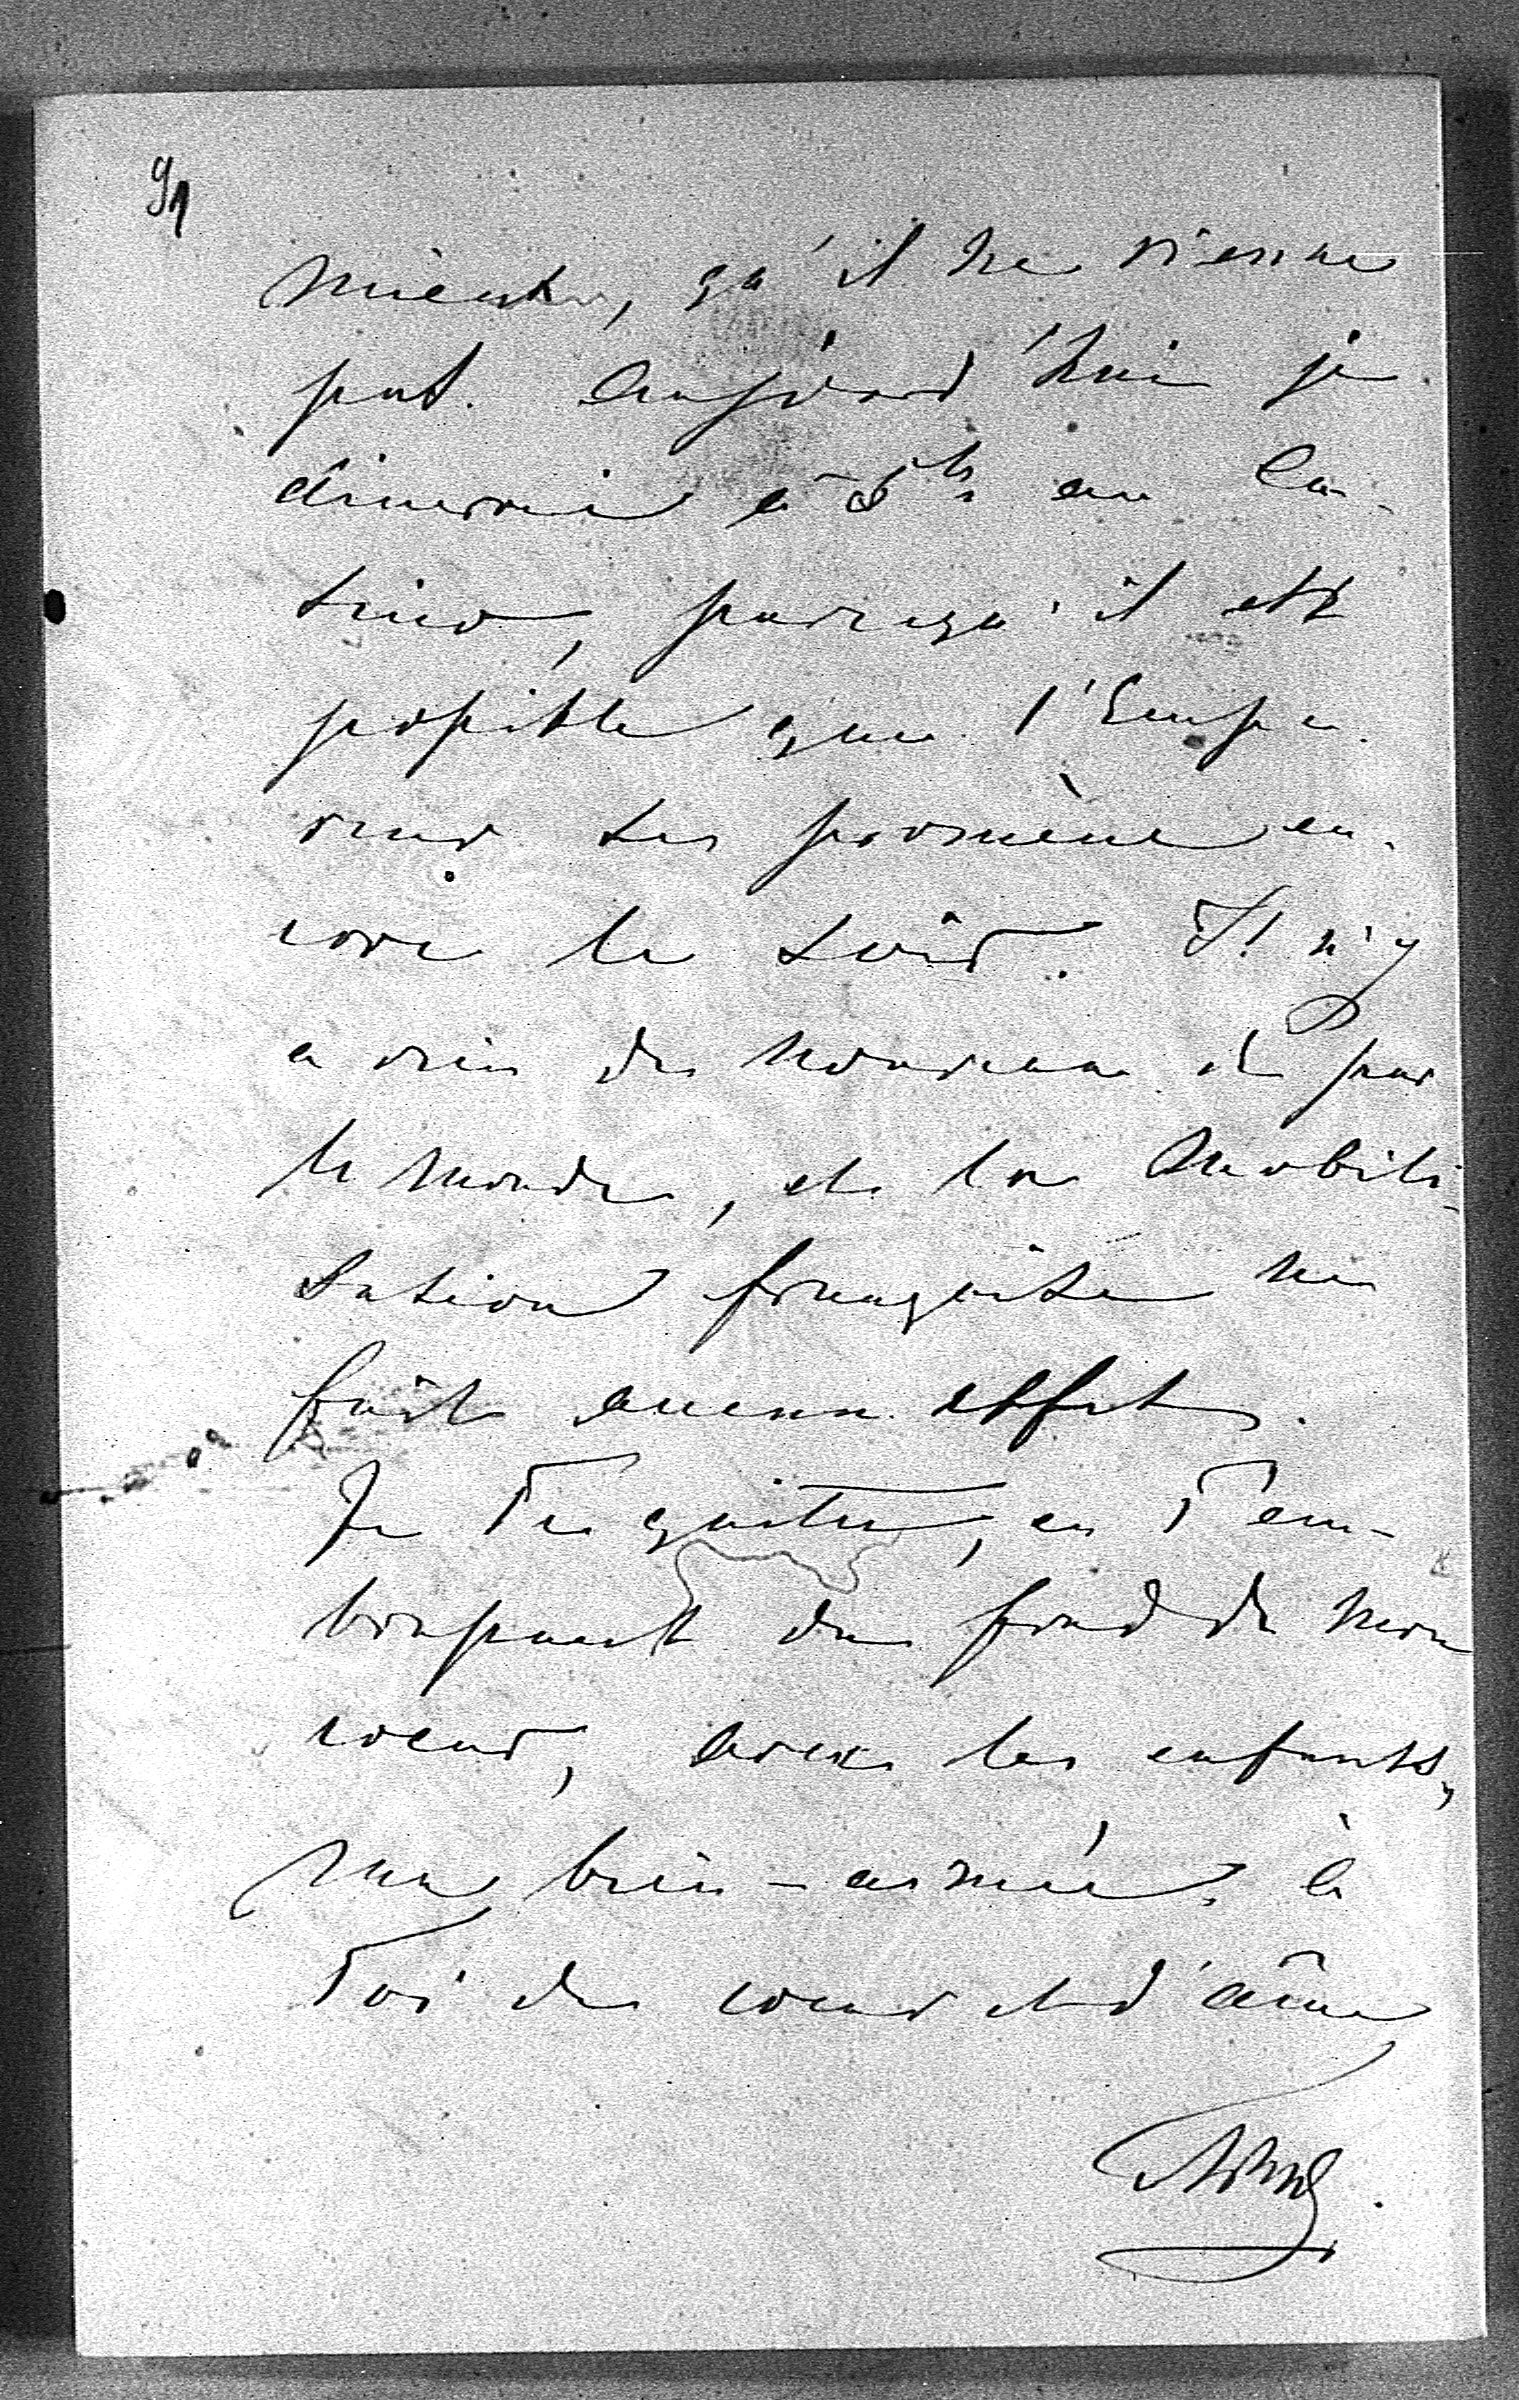 91
mieux, qu'il ne vienne
pas. Aujourd'hui je
dinerai à 5h au Ca-
sino, parcequ'il est
possible que l'Empe-
reur se promène en-
core le soir. Il n'y
a rien de nouveau de par
le monde, et la mobili-
sation française ne
fait aucun effet.
Je Te quitte, en T'em-
brassant du fond de mon
coeur, avec les enfants,
ma bien-aimée, à
Toi de coeur et d'âme